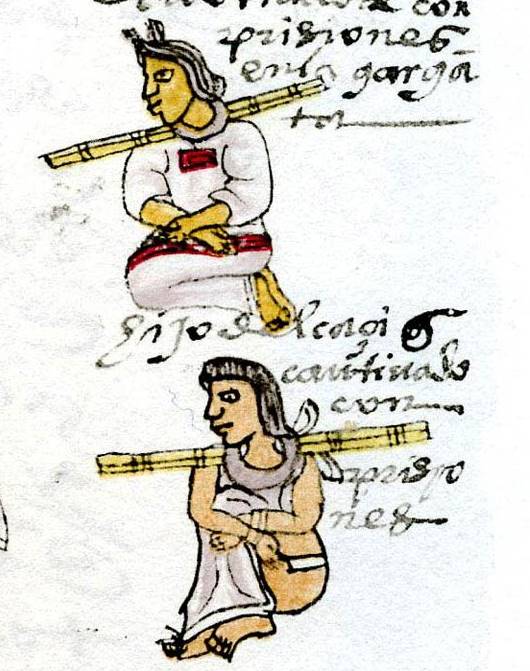 con
prisiones
enla garga
ta
hijo del caçiq
cautivado
con
prisio
nes